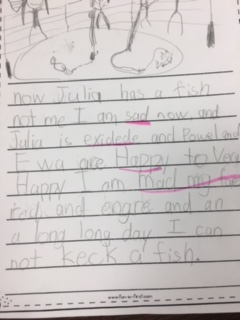 now Julia has a fish
not me I am sad now, and
Julia is exidede and Pawel and
Ewa are Happy to Very
Happy I am mad my
and engre and an
a long long day I can
not keck a fish.